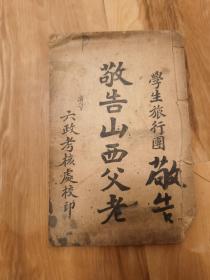 學生旅行團敬告
敬告山西父老
六政考核處校印